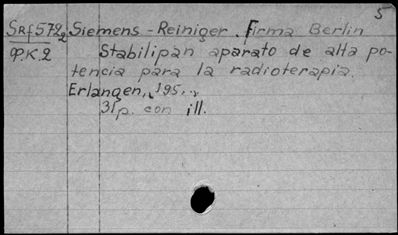 5
SRf572₂ Siemens-Reiniger. Firma Berlin
Ф.К.2 Stabilipan aparato de alta po-
tencia para la radioterapia.
Erlangen, 195..
31p. con ill.